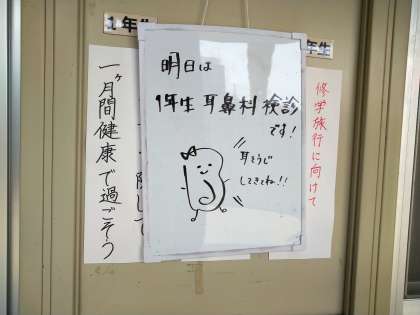 1年生
年生
明日は
1年生 耳鼻科 検診
です!
耳そうじ
してきてね!!
修学旅行に向けて
一ヶ月間健康で過ごそう